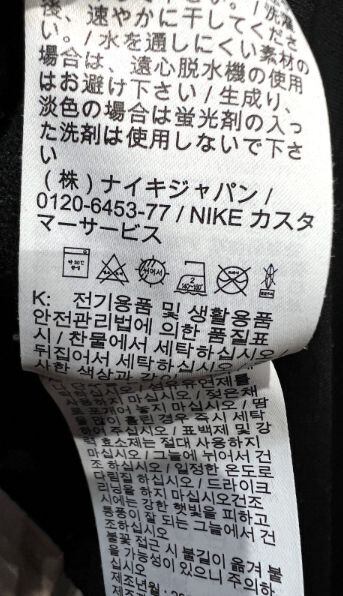 後、速やかに干してくださ
い。/ 水を通しにくい素材の
場合は、遠心脱水機の使用
はお避け下さい / 生成り、
淡色の場合は蛍光剤の入っ
た洗剤は使用しないで下さ
い
(株) ナイキジャパン /
0120-6453-77 / NIKE カスタ
マーサービス
K: 전기용품 및 생활용품
안전관리법에 의한 품질표
시 / 찬물에서 세탁하십시오 /
뒤집어서 세탁하십시오 /
사한 색상과
섬유유연제를
하지 마십시오 / 젖은채
포개어 놓지 마십시오 / 땀
경우 즉시 세탁
하여 주십시오 / 표백제 및 강
력 효소제는 절대 사용하지
마십시오 / 그늘에 뉘어서 건
조 하십시오 / 일정한 온도로
다림질 하십시오 / 드라이크
리닝을 하지 마십시오건조
시에는 강한 햇빛을 피하고
통풍이 잘 되는 그늘에서 건
조하십시오
불꽃 접근 시 불길이 옮겨 붙
을 가능성이 있으니 주의하
십시오
제조년월 :